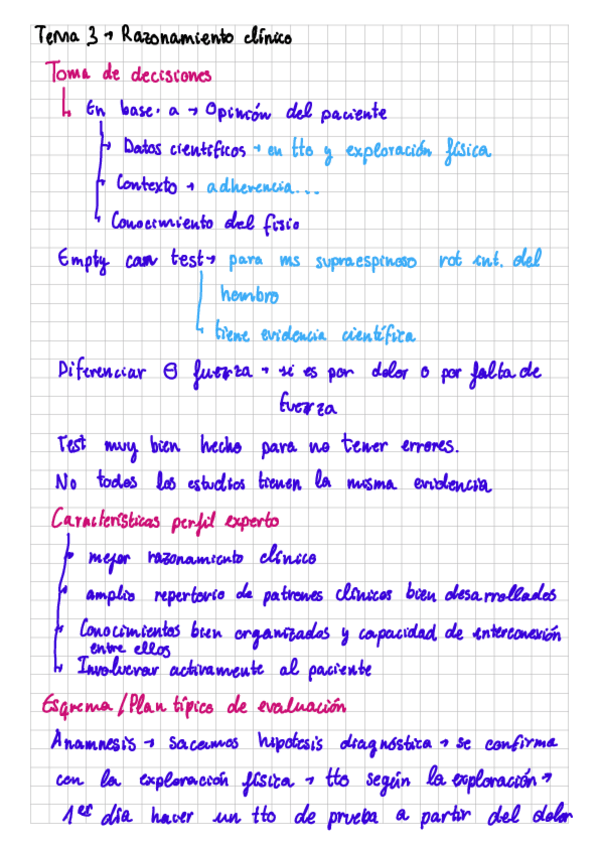 Tema 3 → Razonamiento clínico
Toma de decisiones
En base a → Opinión del paciente
Datos científicos → en tto y exploración física
Contexto → adherencia...
Conocimiento del fisio
Empty can test → para ms supraespinoso rot int. del
hombro
tiene evidencia científica
Diferenciar ⊖ fuerza → si es por dolor o por falta de
fuerza
Test muy bien hecho para no tener errores.
No todos los estudios tienen la misma evidencia
Características perfil experto
mejor razonamiento clínico
amplio repertorio de patrones clínicos bien desarrollados
Conocimientos bien organizados y capacidad de interconexión
entre ellos
Involucrar activamente al paciente
Esquema / Plan típico de evaluación
Anamnesis → sacamos hipotesis diagnóstica → se confirma
con la exploración física → tto según la exploración →
1er día hacer un tto de prueba a partir del dolor